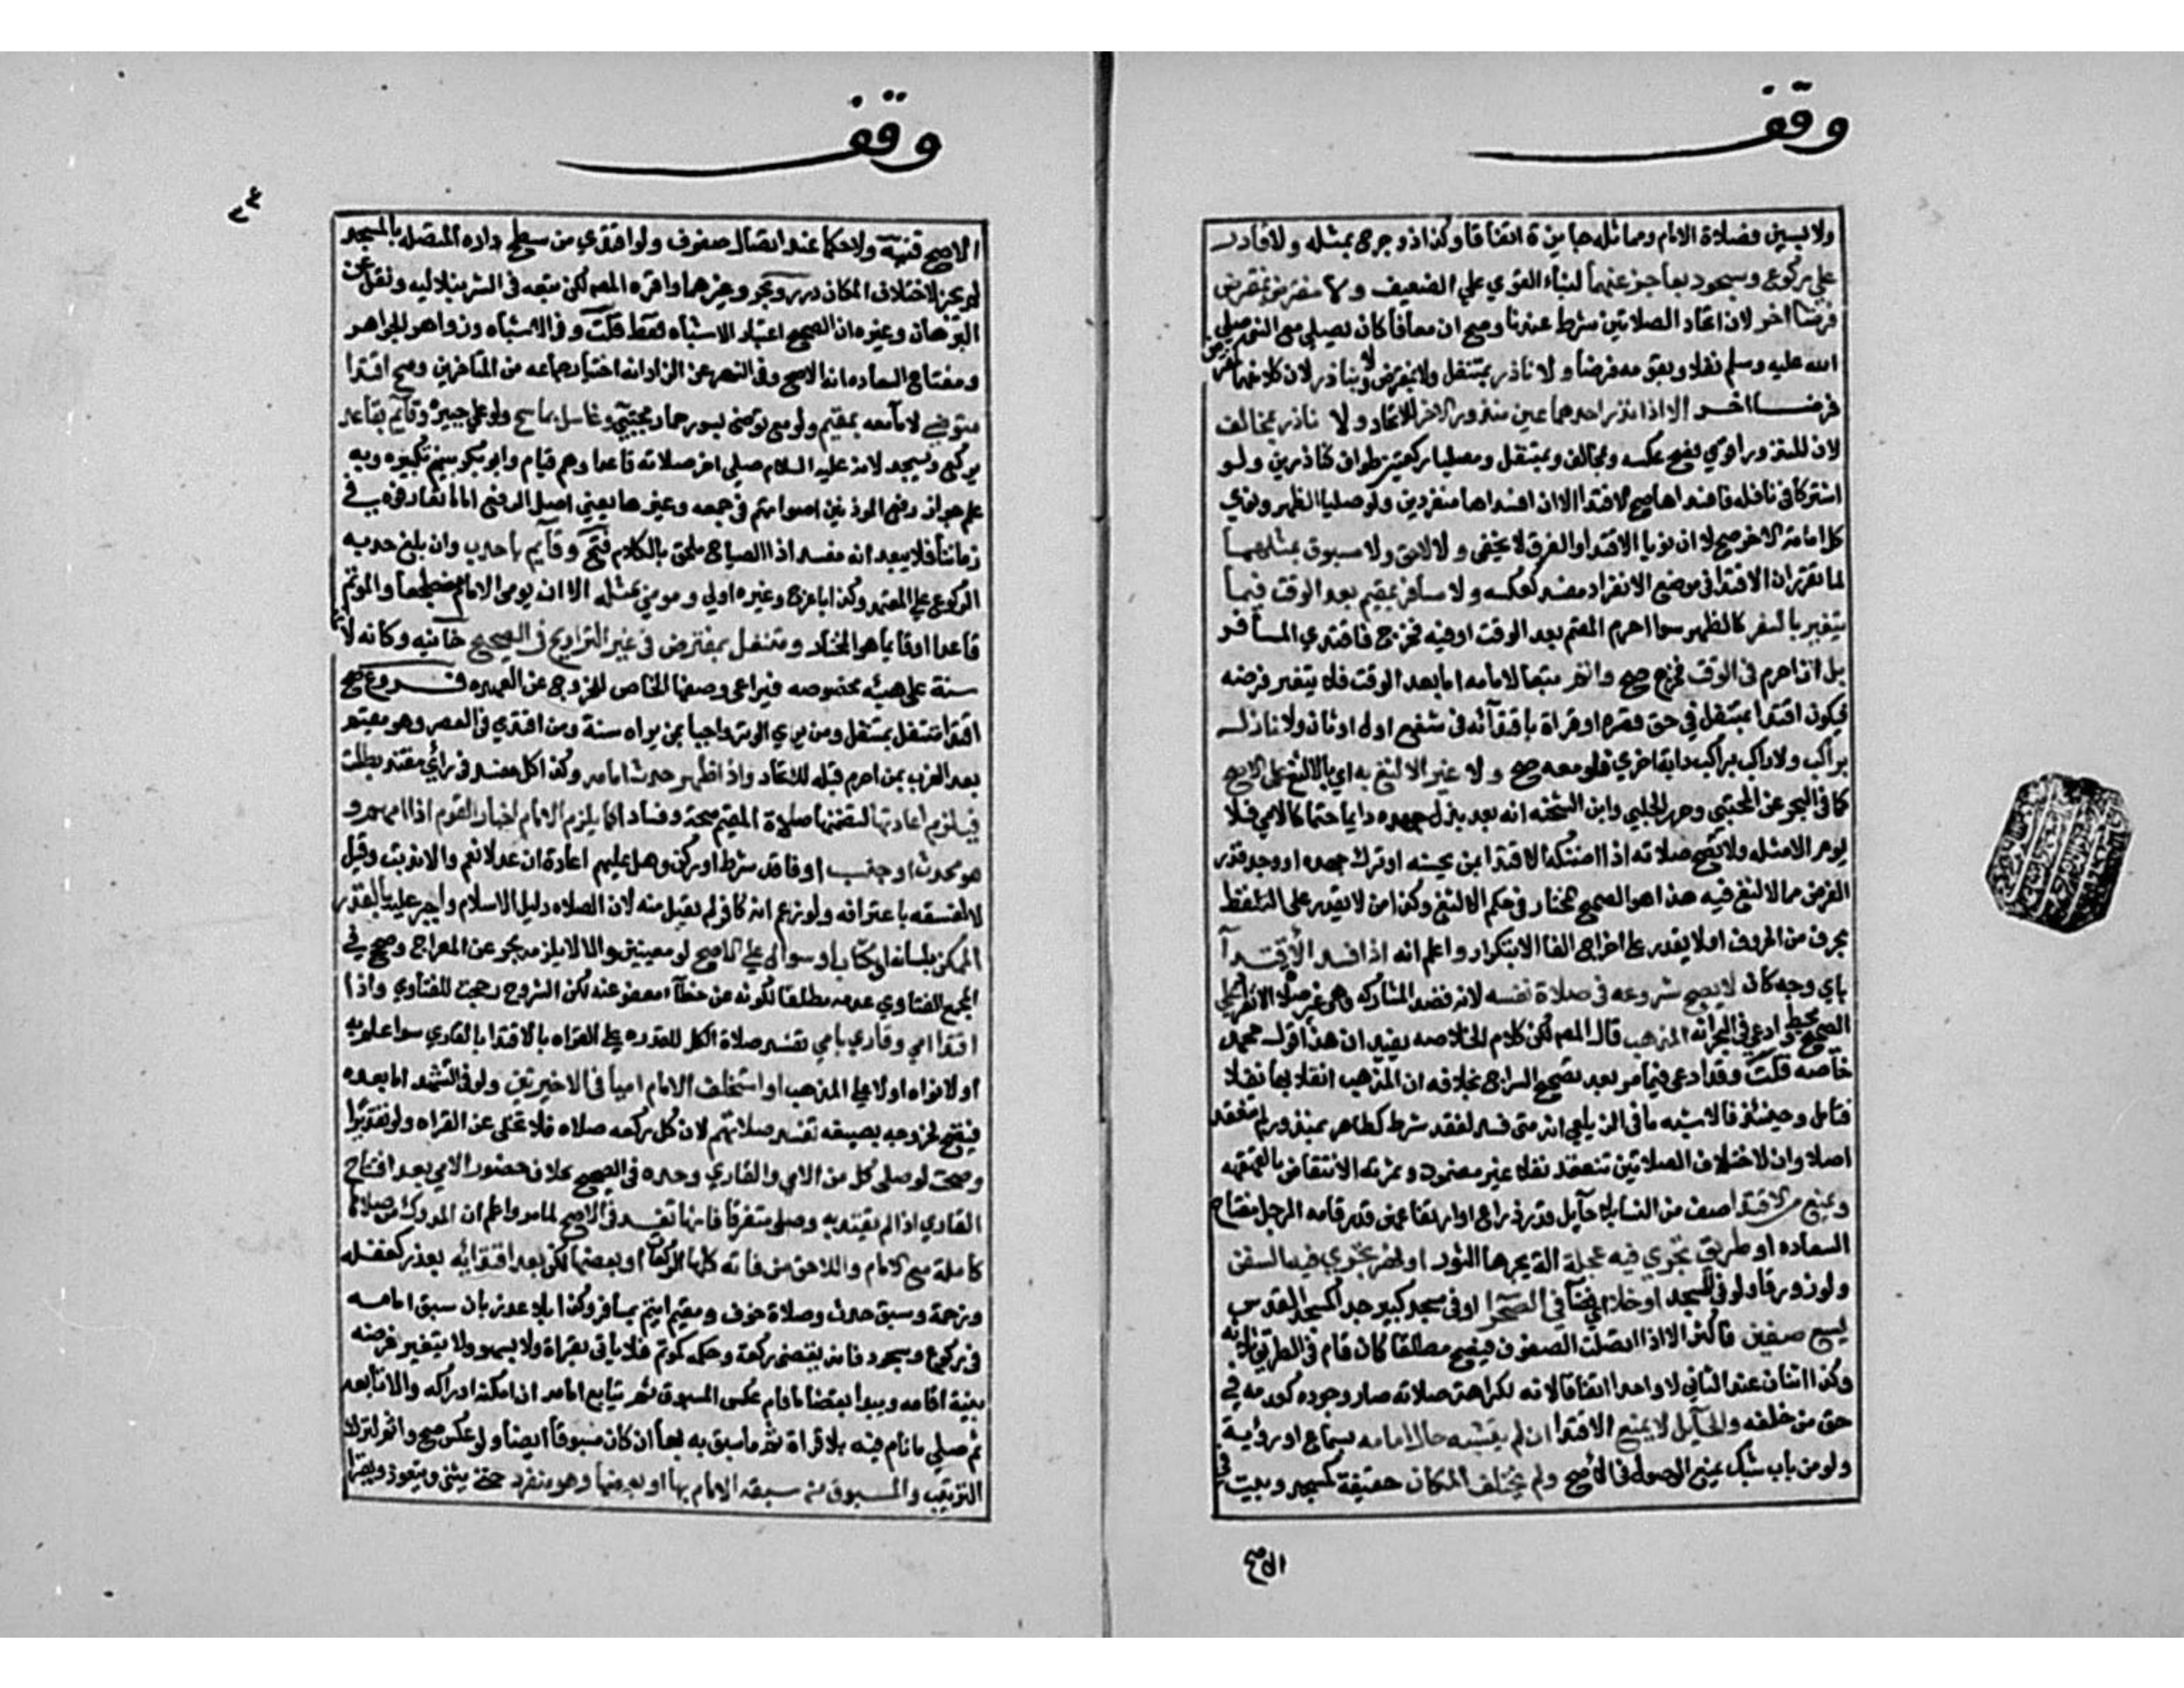 وقف
ولا يسبق وصلاة الامام ومماثله جايزة اتفاقا وكذا ذو جرح بمثله ولا قادر
علي ركوع وسجود بعاجز عنهما لبناء القوي علي الضعيف ولا مفترض بمتنفل وبمفترض
فرضا اخر لان اتحاد الصلاتين شرط عندنا وصح ان معاذا كان يصلي مع النبي صلي
الله عليه وسلم نفلا وبقومه فرضا ولا ناذر بمتنفل ولا بمفترض ولا بناذر لان كلا منهما
فرضا اخر الا اذا نذر احدهما عين منذور الاخر للاتحاد ولا ناذر بحالف
لان المنذورة اقوي فصح عكسه وبحالف وبمتنفل ومصليا ركعتي طواف كناذرين ولو
اشتركا في نافلة فافسداها صح الاقتدا لا ان افسداها منفردين ولو صليا الظهر ونوي
كل امامة الاخر صح لا ان نويا الاقتدا والفرق لا يخفي ولا لاحق ولا مسبوق بمثلهما
لما تقرر ان الاقتدا في موضع الانفراد مفسد كعكسه ولا مسافر بمقيم بعد الوقت فيما
يتغير بالسفر كالظهر سوا احرم المقيم بعد الوقت او فيه فخرج فاقتدي المسافر
بل ان احرم في الوقت فخرج صح واتم تبعا لامامه اما بعد الوقت فلا يتغير فرضه
فيكون اقتدا بمتنفل في حق قعدة او قراة باقتدائه في شفع اول او ثان ولا نازل
براكب ولا راكب براكب دابة اخري فلو معه صح ولا غير الالثغ به اي بالالثغ علي الاصح
كما في البحر عن المجتبي وحرر الحلبي وابن الشحنه انه بعد بذل جهده دايما حتما كالامي فلا
يوم الا مثله ولا تصح صلاته اذا امكنه الاقتدا بمن يحسنه او ترك جهده او وجد قدر
الفرض مما لا لثغ فيه هذا هو الصحيح المختار في حكم الالثغ وكذا من لا يقدر علي التلفظ
بحرف من الحروف او لا يقدر علي اخراج الفا الا بتكرار واعلم انه اذا فسد الاقتدا
باي وجه كان لا يصح شروعه في صلاة نفسه لانه قصد المشاركه وهي غير صلاة الانفراد علي
الصحيح محيط وادعي في البحر انه المذهب قال المص لكن كلام الخلاصه يفيد ان هذا قول محمد
خاصه قلت وقد ادعي فيما مر بعد تصحيح السراج بخلافه ان المذهب انقلابها نفلا
فتامل وحينئذ فالاشبه ما في الزيلعي انه متي فسد لفقد شرط كطاهر بمعذور لم تنعقد
اصلا وان لاختلاف الصلاتين تنعقد نفلا غير مضمون وثمرته الانتقاض بالقهقهه
ويمنع من الاقتدا صف من النسا بلا حايل قدر ذراع او ارتفاعهن قدر قامة الرجل مفتاح
السعاده او طريق تجري فيه عجلة الة يجرها الثور او نهر تجري فيه السفن
ولو زورقا ولو في المسجد او خلا اي فضا في الصحرا او في مسجد كبير جدا كمسجد القدس
يسع صفين فاكثر الا اذا اتصلت الصفوف فيصح مطلقا كان قام في الطريق ثلاثه
وكذا اثنان عند الثاني لا واحد اتفاقا لانه لكراهة صلاته صار وجوده كعدمه في
حق من خلفه والحايل لا يمنع الاقتدا ان لم يشتبه حال امامه بسماع او رؤية
ولو من باب شبك يمنع الوصول في الاصح ولم يختلف المكان حقيقة كمسجد وبيت في
الاصح
وقف
الاصح قنية ولا حكما عند اتصال صفوف ولو اقتدي من سطح داره المتصله بالمسجد
لم يجز لاختلاف المكان درر وبحر وغيرهما واقره المص لكن تعقبه في الشرنبلاليه ونقل عن
البرهان وغيره ان الصحيح اعتبار الاشتباه فقط قلت وفي الاشباه وزواهر الجواهر
ومفتاح السعاده انه الاصح وفي النهر عن الزاد انه اختيار جماعه من المتاخرين وصح اقتدا
متوضي لا ما معه بمتيمم ولو مع توضئ بسور حمار مجتبي وغاسل بماسح ولو علي جبيرة وقايم بقاعد
يركع ويسجد لانه عليه السلام صلي اخر صلاته قاعدا وهم قيام وابو بكر يبلغهم تكبيره وبه
علم جواز رفع الموذنين اصواتهم في جمعه وغيرها يعني اصل الرفع اما ما تعارفوه في
زماننا فلا يبعد انه مفسد اذ الصياح ملحق بالكلام فتح وقايم باحدب وان بلغ حدبه
الركوع علي المعتمد وكذا باعرج وغيره اولي ومومي بمثله الا ان يومي الامام مضطجعا والموتم
قاعدا او قايما هو المختار ومتنفل بمفترض في غير التراويح في الصحيح خانيه وكانه لانها
سنة علي هيئه مخصوصه فيراعي وصفها الخاص للخروج عن العهده فروع صح
اقتدا متنفل بمتنفل ومن يري الوتر واجبا بمن يراه سنة ومن اقتدي في العصر وهو مقيم
بعد الغروب بمن احرم قبله للاتحاد واذا ظهر حدث امامه وكذا كل مفسد في راي مقتد بطلت
فيلزم اعادتها لتضمنها صلاة الموتم صحة وفسادا كما يلزم الامام اخبار القوم اذا امهم و
هو محدث او جنب او فاقد شرط او ركن وهل عليهم اعادة ان عدلا نعم والا ندبت وقيل
لا لفسقه باعترافه ولو زعم انه كافر لم يقبل منه لان الصلاه دليل الاسلام واجبر عليه بالقدر
الممكن بلسانه او كتاب او رسول علي الاصح لو معينين والا لا يلزمه بحر عن المعراج وصحح في
مجمع الفتاوي عدمه مطلقا لكونه عن خطا معفو عنه لكن الشروح رجحت للفتاوي واذا
اقتدا امي وقاري بامي تفسد صلاة الكل للقدره علي القراه بالاقتدا بالقاري سوا علم به
او لا نواه او لا علي المذهب او استخلف الامام اميا في الاخيرتين ولو في التشهد اما بعده
فتصح لخروجه بصنعه تفسد صلاتهم لان كل ركعه صلاه فلا تخلي عن القراه ولو تقديرا
وصحت لو صلي كل من الامي والقاري وحده في الصحيح بخلاف حضور الامي بعد افتتاح
القاري اذا لم يقتد به وصلي منفردا فانها تفسد في الاصح لما مر واعلم ان المدرك من صلاها
كاملة مع الامام واللاحق من فاته كلها الركعات او بعضها لكن بعد اقتدائه بعذر كغفله
وزحمة وسبق حدث وصلاة خوف ومقيم ايتم بمسافر وكذا بلا عذر بان سبق امامه
في ركوع وسجود فانه يقضي ركعة وحكمه كموتم فلا ياتي بقراة ولا سهو ولا يتغير فرضه
بنية اقامه ويبدا بقضا ما فاته عكس المسبوق ثم يتابع امامه ان امكنه ادراكه والا تابعه
ثم صلي ما نام فيه بلا قراة ثم ما سبق به بها ان كان مسبوقا ايضا ولو عكس صح واثم لترك
الترتيب والمسبوق من سبقه الامام بها او ببعضها وهو منفرد حتي يثني ويتعوذ ويقرا